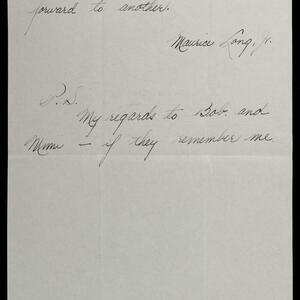 forward to another.
Maurice Long, Jr.
P.S.
My regards to Bob and
Mimi — if they remember me